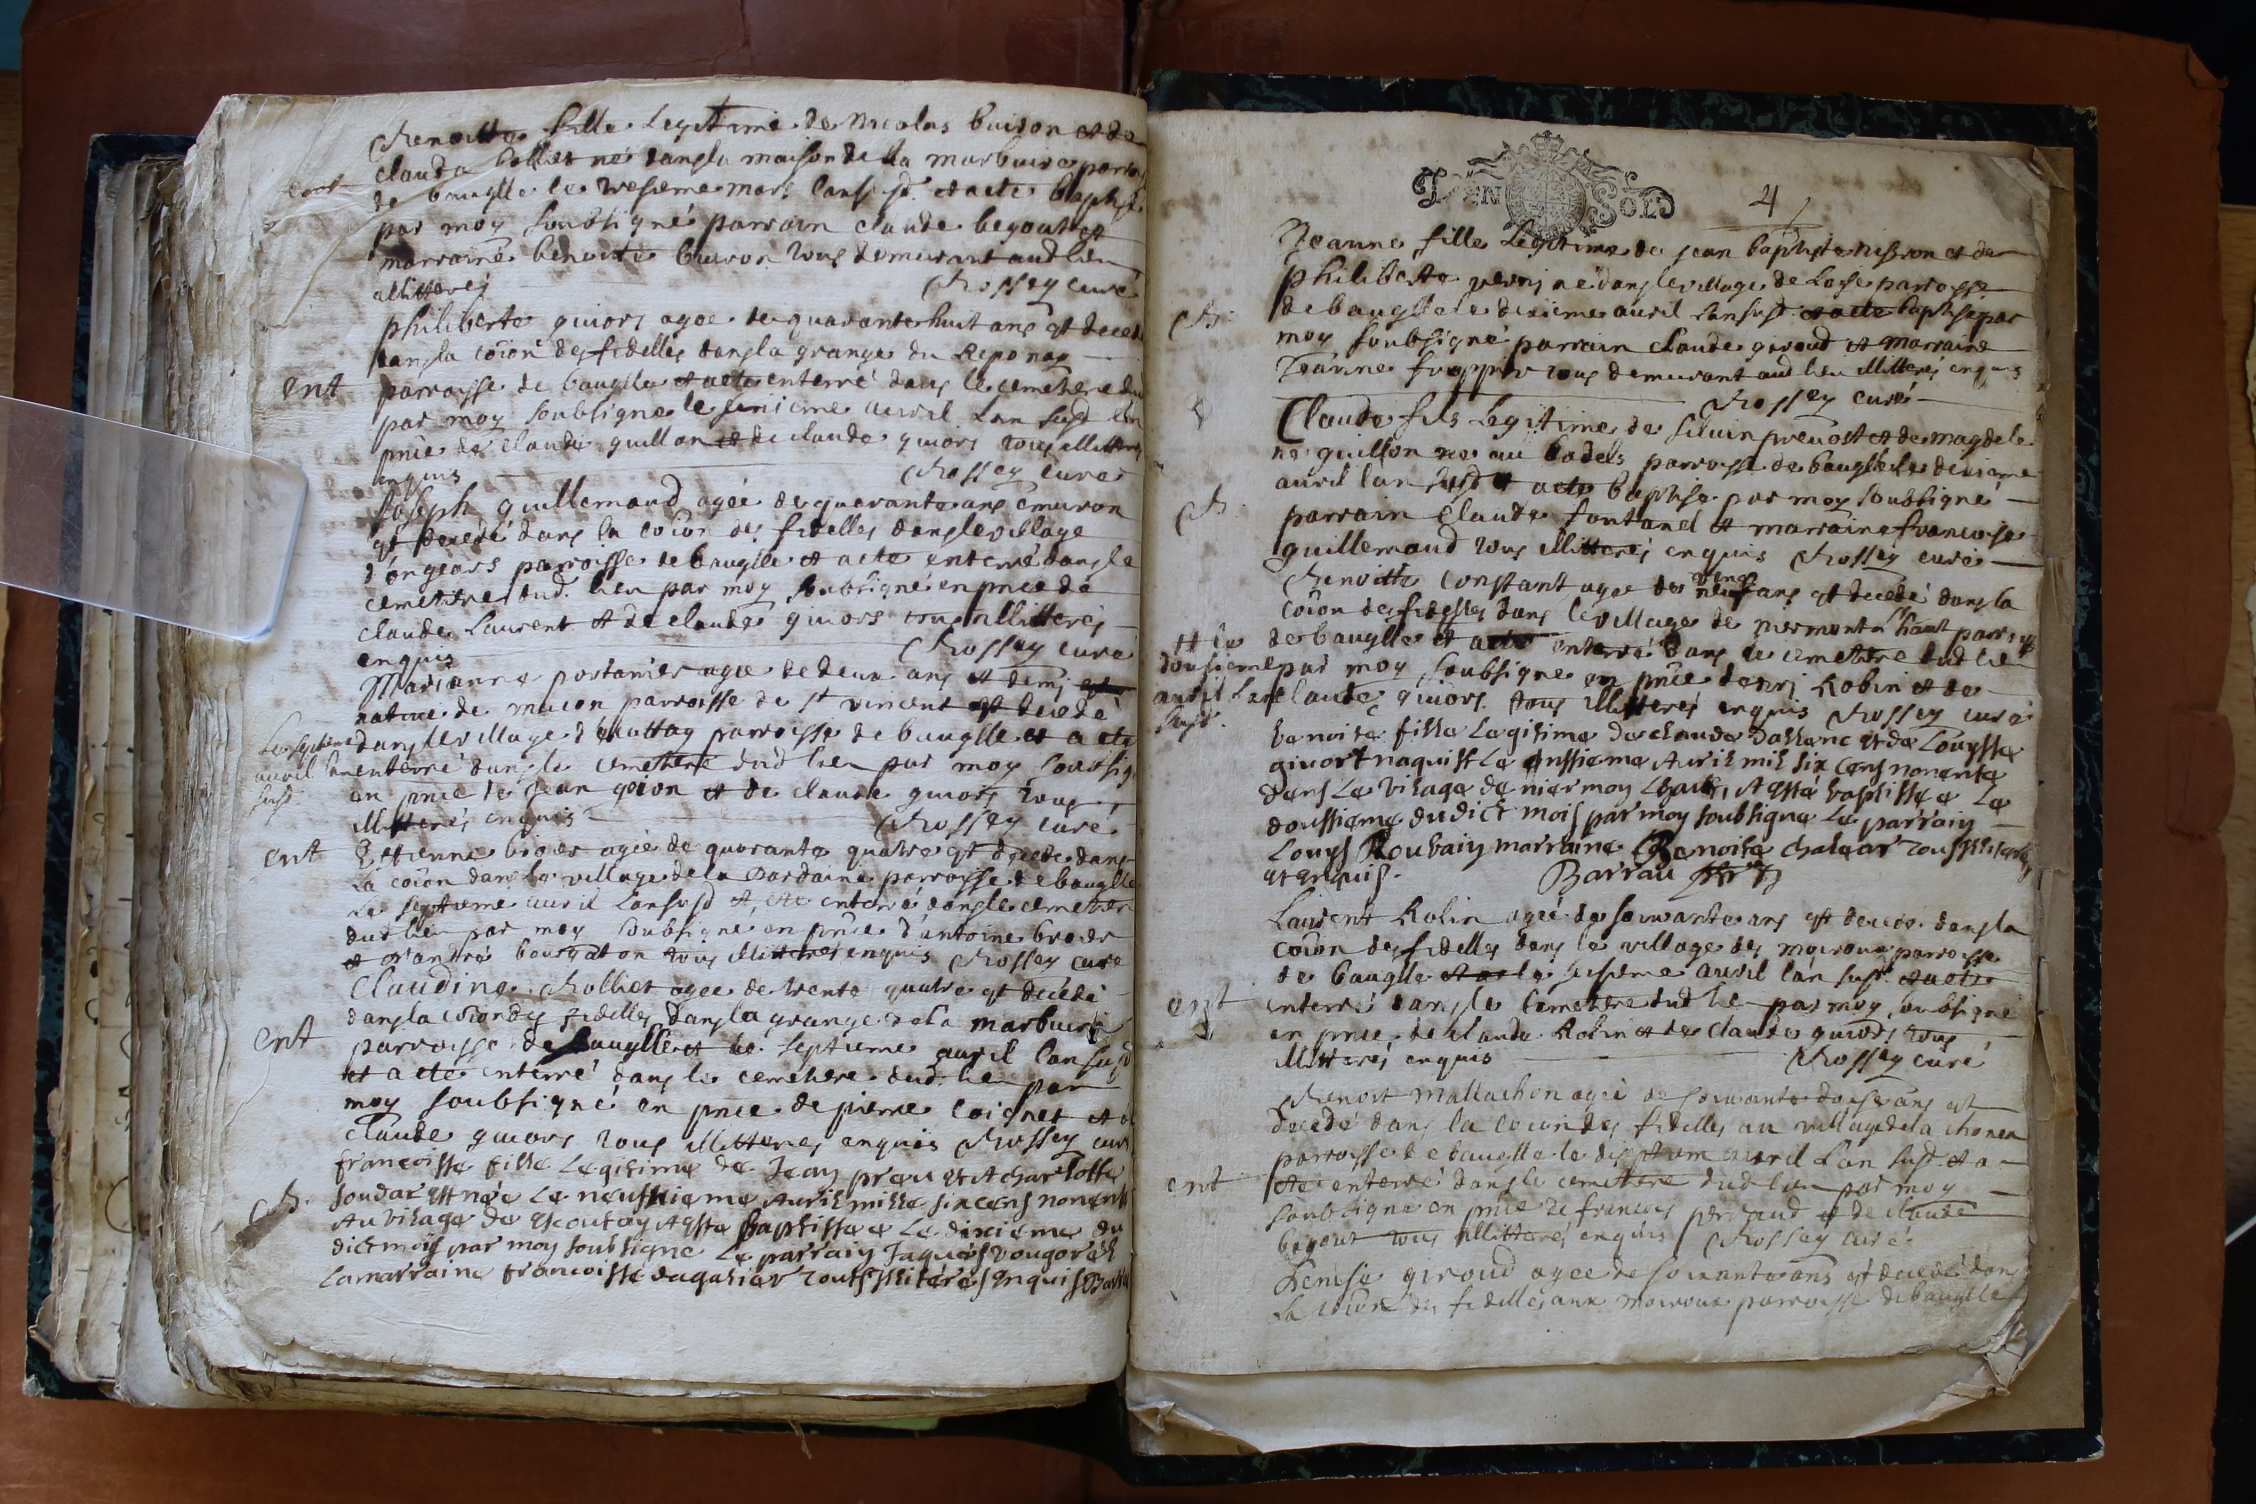 Benoitte fille legitime de Nicolas buison et de
clauda Rolliet né dans la maison de la marbuire parro
de bauglle le tresieme mars lansusd. et acte baptisé
par moy soubsigné parrain claude begoud et
marraine benoite buison tous demeurant aud lieu
illitterés Rossey curé
philiberte guiors agee de quarante huit ans est decede
dans la coion des fidelles dans la grange du Reponay
ent
parroisse de bauglle et acte enterré dans le cemetiere du
par moy soubsigne le unieme avril lan susd en
pnce de Claude guillon et de claude guiors tous illitteres
enquis Rossey curé
Joseph guillemaud agée de quarante ans environ
est decedé dans la coion des fidelles dans le village
d'ongears parroisse de bauglle et acte enterré dans le
cemettre dud. lieu par moy soubsigné en pnce de
claude Laurent et de claude guiors tous illitterés
enquis Rossey curé
Marianne portanier agee de deux ans et demi
native de macon parroisse de st vincent est decedé
dans le village d'écuttay parroisse de bauglle et acte
Le septieme
avril lan
susd
enterré dans le cemetiere dud lieu par moy soubsig
en pnce de Jean goion et de claude guiors tous
illitterés enquis Rossey curé
ent
Ettienne broier agée de quarante quatre est decede dans
La coion dans le village de la Dardaine parroisse de bauglle
le septieme avril lansusd et acte enterré dans le cemetiere
dud lieu par moy soubsigne en pnce d'antoine broier
et d'andré bourgaton tous illitterés enquis Rossey curé
Claudine Rolliet agee de trente quatre est decedé
dans la coion des fidelles dans la grange de la marbuire
ent
parroisse de bauglle et le septieme avril lan susd
et acte enterré dans le cemetiere dud. lieu par
moy soubsigné en pnce de pierre Coignet et d
claude guiors tous illitteres enquis Rossey curé
francoisse fille Legitime de Jean preu et charlotte
B.
soudar est née Le neufsieme Avril mille six cens nonente
Au vilage de escoutay Aesté Baptissee Le dixieme du
dict mois par moy soubsigne Le parrain Jaques
Lamarraine francoisse dagasier touts illiterés enquis Barra
4
Jeanne fille Legitime de jean baptiste nisson et de
philiberte verni né dans le village de Loise parroisse
B.
de bauglle le dixieme avril lansusd. et acte baptisé par
moy soubsigné parrain Claude giroud et marraine
Jeanne frappier tous demeurant aud lieu illitterés enquis
Rossey curé
Claude fils Legitime de silvin prevost et de magdele
ne guillon né au badels parroisse de bauglle le dixieme
avril lan susd et acte baptisé par moy soubsigné
B.
parrain Claude fontanel et marraine francoise
guillemaud tous illitterés enquis Rossey curé
Benoitte Constant agee de vingt neuf ans est decedé dans la
coion des fidelles dans le village de niermont le haut parroisse
et le
de bauglle et acte enterré dans le cemettre dud lieu
dousieme
par moy soubsigne en pnce d'enri Robin et de
avril lan
claude guiors tous illitterés enquis Rossey curé
susd.
benoite fille Legitime de claude dallanc et de Louysse
givort naquist Le onssieme Avril mil six cens nonente
dans Le vilage de niermoy Lhaut, Aesté baptissee Le
doussieme dudict mois par moy soubsigne Le parrain
Louys Roubain marraine Benoite chaleas tous illiterés
et enquis. Barrau
Laurent Robin agée de soixante ans est decede dans la
coion des fidelles dans le village des moiroux parroisse
de bauglle et le sesieme avril lan susd. et acte
ent
enterré dans le cemetiere dud lieu par moy soubsigné
en pnce de claude Robin et de Claude guiors tous
illitterés enquis Rossey curé
Benoit Mallachon agée de soixante douse ans est
decedé dans la coion des fidelles au village de la chonea
parroisse de bauglle le disetiem avril lan susd et a
ent
ete enterré dans le cemetiere dud lieu par moy
soubsigne en pnce de francois perraud et de claude
begout tous illitterés enquis Rossey curé
Denise giroud agee de soixante ans est decedé dans
la coion des fidelles aux moiroux parroisse de bauglle